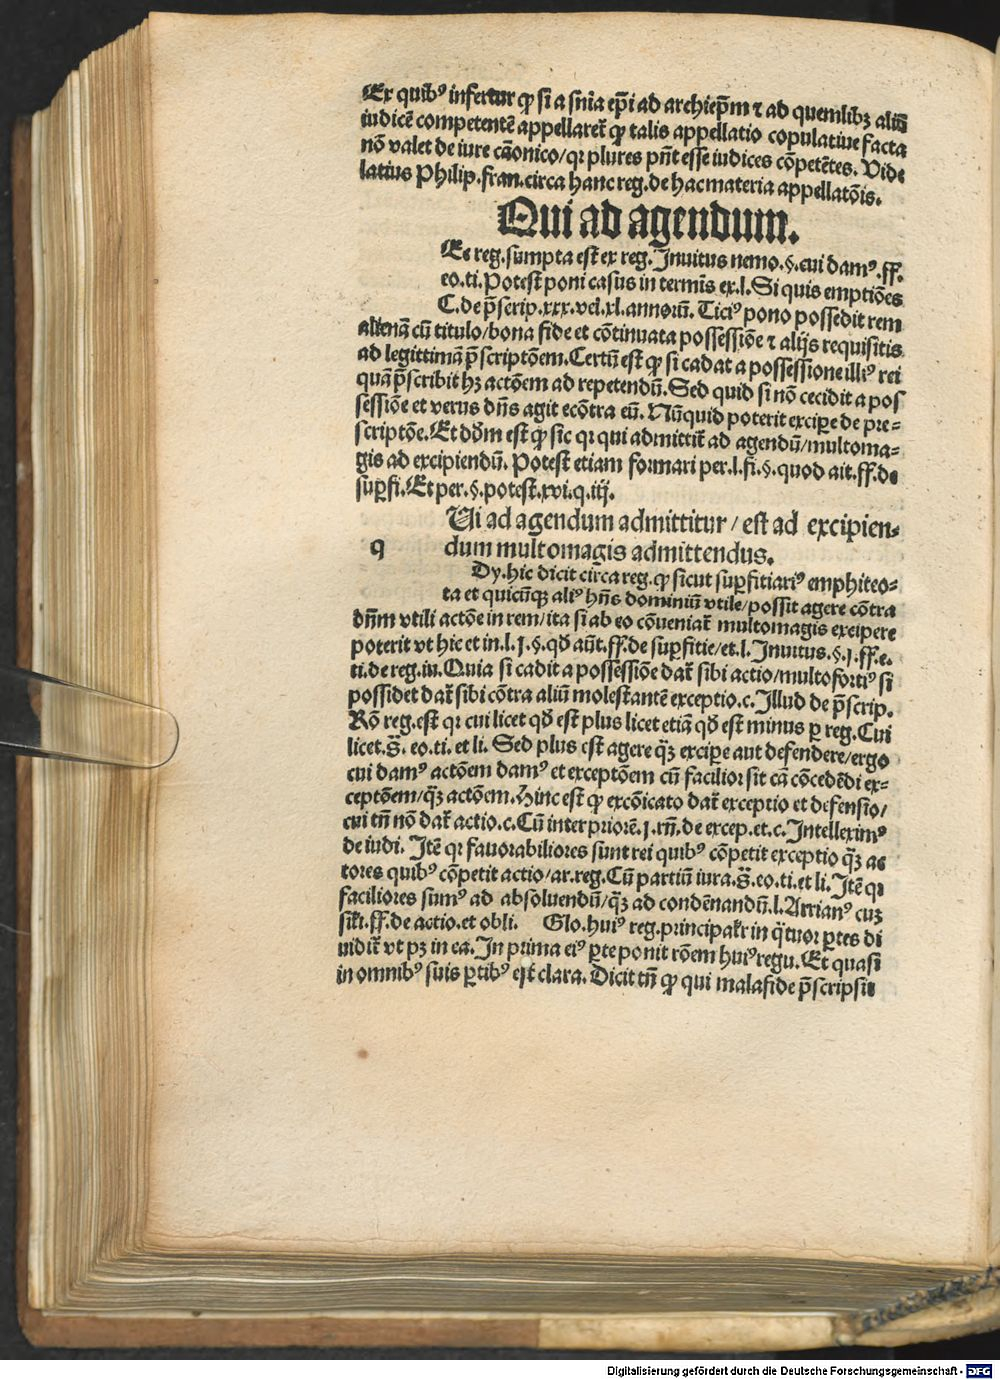 Ex quibꝰ infertur ꝙ si a sñia ep̃i ad archiep̃m ⁊ ad quemlibꝫ aliũ
iudicẽ competentẽ appellaret̃ ꝙ talis appellatio copulatiue facta
nõ valet de iure cãnonico/qꝛ plures pñt esse iudices cõpetẽtes. Vide
latius Philip.fran.circa hanc reg.de hac materia appellatõis.
Qui ad agendum.
Ec reg.sumpta est ex reg.Inuitus nemo.§.cui damꝰ.ff.
eo.ti.Potest poni casus in termĩs ex.l.Si quis emptiões
C.de p̃scrip.xxx.vel.xl.annorũ. Ticiꝰ pono possedit rem
alienã cũ titulo/bona fide et cõtinuata possessiõe ⁊ alijs requisitis
ad legittimã p̃scriptõem.Certũ est ꝙ si cadat a possessione illiꝰ rei
quã p̃scribit hꝫ actõem ad repetendũ.Sed quid si nõ cecidit a pos
sessiõe et verus dñs agit ecõtra eũ. Nũquid poterit excipe de pre=
scriptõe.Et dõm est ꝙ sic qꝛ qui admittit̃ ad agendũ/multoma=
gis ad excipiendũ. Potest etiam formari per.l.fi.§.quod ait.ff.de
supfi.Et per.§.potest.xvi.q.iij.
Ui ad agendum admittitur/est ad excipien=
q dum multomagis admittendus.
Dy.hic dicit circa reg.ꝙ sicut supfitiariꝰ emphiteo=
ta et quicũqꝫ aliꝰ hñs dominiũ vtile/possit agere cõtra
dñm vtili actõe in rem/ita si ab eo cõueniat̃ multomagis exeipere
poterit vt hic et in.l.1.§.qð aũt.ff.de supfitie/et.l.Inuitus.§.1.ff.e.
ti.de reg.iu.Quia si cadit a possessiõe dat̃ sibi actio/multofortiꝰ si
possidet dat̃ sibi cõtra aliũ molestantẽ exceptio.c.Illud de p̃scrip.
Rõ reg.est qꝛ cui licet qð est plus licet etiã qð est minus ꝑ reg.Cui
licet.s̃. eo.ti.et li. Sed plus est agere q̃ꝫ excipe aut defendere/ergo
cui damꝰ actõem damꝰ et exceptõem cũ facilior sit cã cõcedẽdi ex=
ceptõem/q̃ꝫ actõem.Hinc est ꝙ excõicato dat̃ exceptio et defensio/
cui tñ nõ dat̃ actio.c.Cũ inter priorẽ.1.rñ.de excep.et.c.Intelleximꝰ
de iudi. Itẽ qꝛ fauorabiliores sunt rei quibꝰ cõpetit exceptio q̃ꝫ ac
tores quibꝰ cõpetit actio/ar.reg.Cũ partiũ iura.s̃.eo.ti.et li.Itẽ qꝛ
faciliores sumꝰ ad absoluendũ/q̃ꝫ ad condẽnandũ.l.Arrianꝰ cuꝫ
sil̃i.ff.de actio.et obli. Glo.huiꝰ reg.principal̃r in q̃tuor ꝑtes di
uidit̃ vt pꝫ in ea.In prima eiꝰ ꝑte ponit rõem huiꝰ regu.Et quasi
in omnibꝰ suis ꝑtibꝰ est clara. Dicit tñ ꝙ qui mala fide p̃scripsit
Digitalisierung gefördert durch die Deutsche Forschungsgemeinschaft - DFG